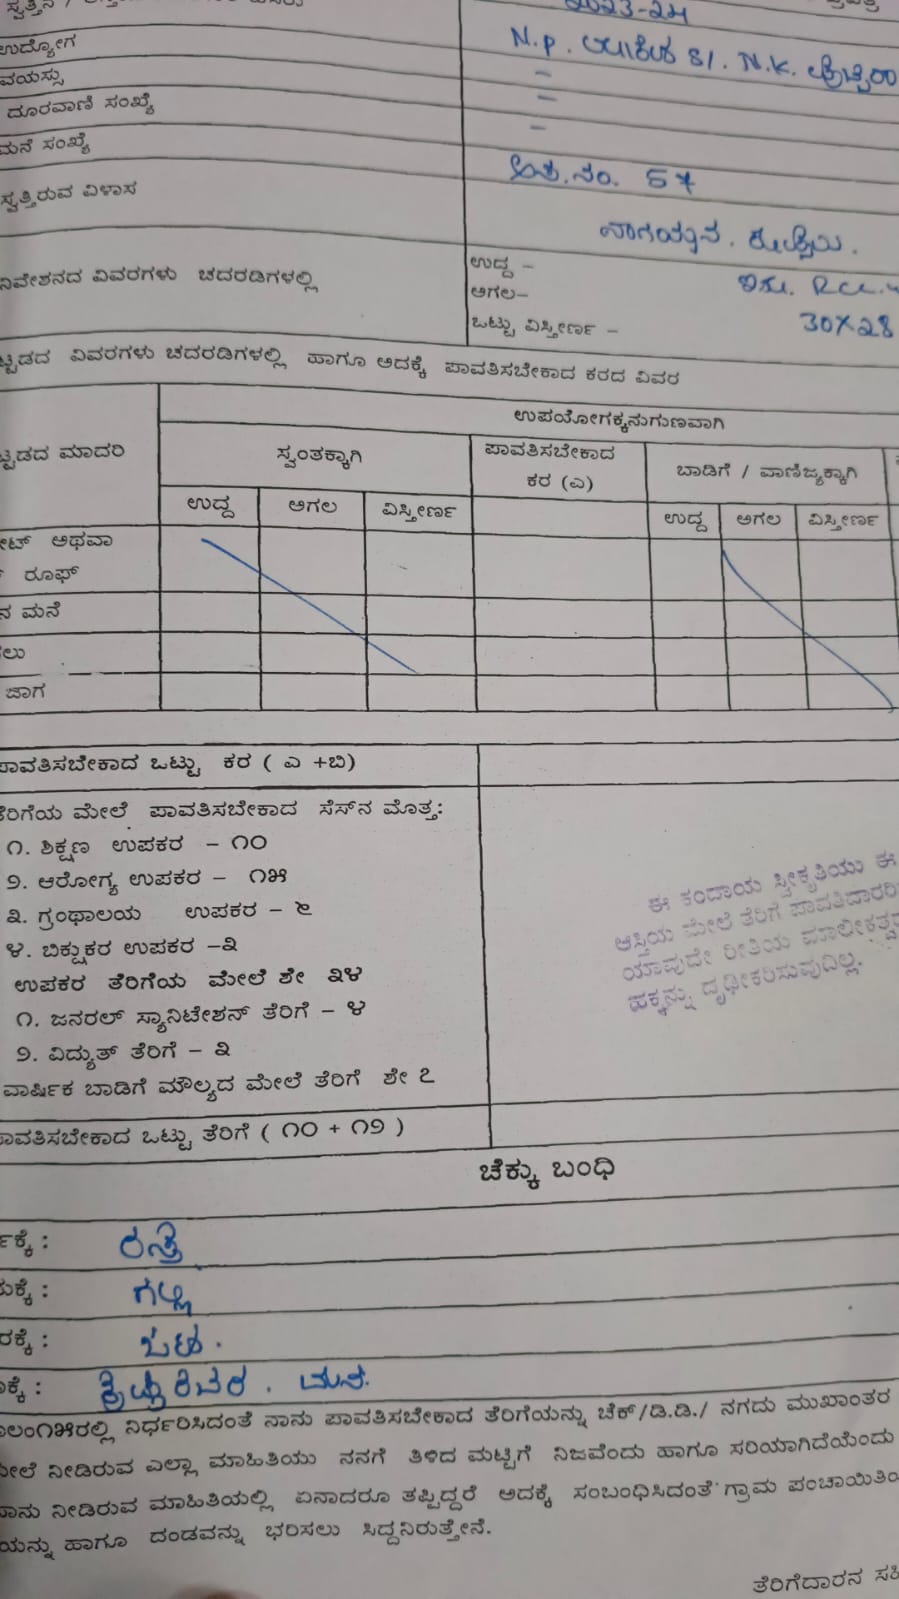 2023-24
ಉದ್ಯೋಗ
N.p. S/. N.K.
ವಯಸ್ಸು –
ದೂರವಾಣಿ ಸಂಖ್ಯೆ –
ಮನೆ ಸಂಖ್ಯೆ –
ಸ್ವತ್ತಿರುವ ವಿಳಾಸ
ನಂ. 57
ನಿವೇಶನದ ವಿವರಗಳು ಚದರಡಿಗಳಲ್ಲಿ
ಉದ್ದ –
ಅಗಲ–
ಒಟ್ಟು ವಿಸ್ತೀರ್ಣ – 30X28
ಟ್ಟಡದ ವಿವರಗಳು ಚದರಡಿಗಳಲ್ಲಿ ಹಾಗೂ ಅದಕ್ಕೆ ಪಾವತಿಸಬೇಕಾದ ಕರದ ವಿವರ
ಉಪಯೋಗಕ್ಕನುಗುಣವಾಗಿ
ಟ್ಟಡದ ಮಾದರಿ
ಸ್ವಂತಕ್ಕಾಗಿ
ಪಾವತಿಸಬೇಕಾದ
ಕರ (ಎ)
ಬಾಡಿಗೆ / ವಾಣಿಜ್ಯಕ್ಕಾಗಿ
ಉದ್ದ ಅಗಲ ವಿಸ್ತೀರ್ಣ ಉದ್ದ ಅಗಲ ವಿಸ್ತೀರ್ಣ
ೀಟ್ ಅಥವಾ
ರೂಫ್
ನ ಮನೆ
ಲು
ಜಾಗ
ಪಾವತಿಸಬೇಕಾದ ಒಟ್ಟು ಕರ ( ಎ +ಬಿ)
ತೆರಿಗೆಯ ಮೇಲೆ ಪಾವತಿಸಬೇಕಾದ ಸೆಸ್‌ನ ಮೊತ್ತ:
೧. ಶಿಕ್ಷಣ ಉಪಕರ – ೧೦
೨. ಆರೋಗ್ಯ ಉಪಕರ – ೧೫
೩. ಗ್ರಂಥಾಲಯ ಉಪಕರ – ೬
೪. ಬಿಕ್ಷುಕರ ಉಪಕರ –೩
ಉಪಕರ ತೆರಿಗೆಯ ಮೇಲೆ ಶೇ ೩೪
೧. ಜನರಲ್ ಸ್ಯಾನಿಟೇಶನ್ ತೆರಿಗೆ – ೪
೨. ವಿದ್ಯುತ್ ತೆರಿಗೆ – ೩
ವಾರ್ಷಿಕ ಬಾಡಿಗೆ ಮೌಲ್ಯದ ಮೇಲೆ ತೆರಿಗೆ ಶೇ ೭
ಈ ಕಂದಾಯ ಸ್ವೀಕೃತಿಯು ಈ
ಆಸ್ತಿಯ ಮೇಲೆ ತೆರಿಗೆ ಪಾವತಿದಾರರಿ
ಯಾವುದೇ ರೀತಿಯ ಮಾಲೀಕತ್ವ
ಹಕ್ಕನ್ನು ದೃಢೀಕರಿಸುವುದಿಲ್ಲ.
ಪಾವತಿಸಬೇಕಾದ ಒಟ್ಟು ತೆರಿಗೆ ( ೧೦ + ೧೨ )
ಚೆಕ್ಕು ಬಂಧಿ
ಕ್ಕೆ : ರಸ್ತೆ
ಕ್ಕೆ : ಗಲ್ಲಿ
ರಕ್ಕೆ :
ಕ್ಕೆ : ಮನೆ.
ಲಂ೧೫ರಲ್ಲಿ ನಿರ್ಧರಿಸಿದಂತೆ ನಾನು ಪಾವತಿಸಬೇಕಾದ ತೆರಿಗೆಯನ್ನು ಚೆಕ್/ಡಿ.ಡಿ./ ನಗದು ಮುಖಾಂತರ
ಮೇಲೆ ನೀಡಿರುವ ಎಲ್ಲಾ ಮಾಹಿತಿಯು ನನಗೆ ತಿಳಿದ ಮಟ್ಟಿಗೆ ನಿಜವೆಂದು ಹಾಗೂ ಸರಿಯಾಗಿದೆಯೆಂದು
ನಾನು ನೀಡಿರುವ ಮಾಹಿತಿಯಲ್ಲಿ ಏನಾದರೂ ತಪ್ಪಿದ್ದರೆ ಅದಕ್ಕೆ ಸಂಬಂಧಿಸಿದಂತೆ ಗ್ರಾಮ ಪಂಚಾಯಿತಿಂ
ಯನ್ನು ಹಾಗೂ ದಂಡವನ್ನು ಭರಿಸಲು ಸಿದ್ದನಿರುತ್ತೇನೆ.
ತೆರಿಗೆದಾರನ ಸಹಿ